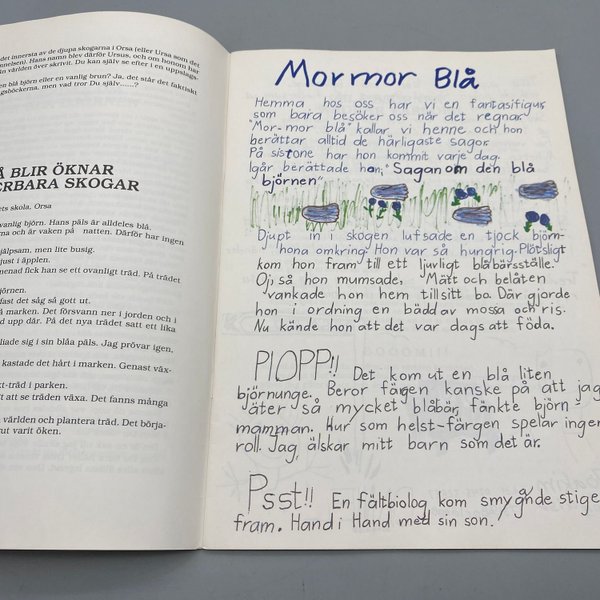 det innersta av de djupa skogarna i Orsa (eller Ursa som det
Hans namn blev därför Ursus, och om honom har
världen över skrivit. Du kan själv se efter i en uppslags-
blå björn eller en vanlig brun? Ja, det står det faktiskt
men vad tror Du själv......?
BLIR ÖKNAR
SKOGAR
skola, Orsa
vanlig björn. Hans päls är alldeles blå.
och är vaken på natten. Därför har ingen
men lite busig.
just i äpplen.
fick han se ett ovanligt träd. På trädet
fast det såg så gott ut.
marken. Det försvann ner i jorden och i
upp där. På det nya trädet satt ett lika
sig i sin blåa päls. Jag prövar igen.
kastade det hårt i marken. Genast väx-
träd i parken.
att se träden växa. Det fanns många
världen och plantera träd. Det börja-
varit öken.
Mormor Blå
Hemma hos oss har vi en fantasifigur
som bara besöker oss när det regnar.
"Mor-mor blå" kallar vi henne och hon
berättar alltid de härligaste sagor.
På sistone har hon kommit varje dag.
Igår berättade hon, "Sagan om den blå
björnen"
Djupt in i skogen lufsade en tjock björn-
hona omkring. Hon var så hungrig. Plötsligt
kom hon fram till ett ljuvligt blåbärsställe.
Oj, så hon mumsade, Mätt och belåten
vankade hon hem till sitt bo. Där gjorde
hon i ordning en bädd av mossa och ris.
Nu kände hon att det var dags att föda.
PLOPP!! Det kom ut en blå liten
björnunge. Beror färgen kanske på att jag
äter så mycket blåbär, tänkte björn-
mamman. Hur som helst-färgen spelar ingen
roll. Jag, älskar mitt barn som det är.
Psst!! En fältbiolog kom smygande stigen
fram. Hand i Hand med sin son.